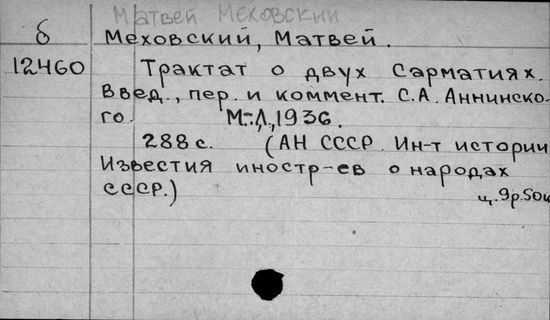 Матвей Меховский
б Меховский, Матвей.
12460 Трактат о двух Сарматиях.
Введ., пер. и коммент. С.А. Аннинско-
го. М.-Л., 1936.
288 с. (АН СССР. Ин-т истории
Известия иностр-ев о народах
СССР.)
ц. 9р.50к